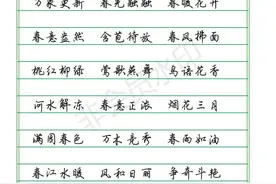 万象更新 春光融融 春暖花开
春意盎然 含苞待放 春风拂面
桃红柳绿 莺歌燕舞 鸟语花香
河水解冻 春意正浓 烟花三月
满园春色 万木竞秀 春雨如油
春江水暖 风和日丽 争奇斗艳